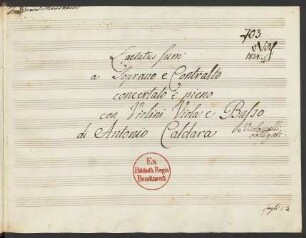 703
Laetatus sum
a Soprano e Contralto
concertato è pieno
con Violini Viola e Basso
di Antonio Caldara
Ex
Biblioth. Regia
Berolinensi.